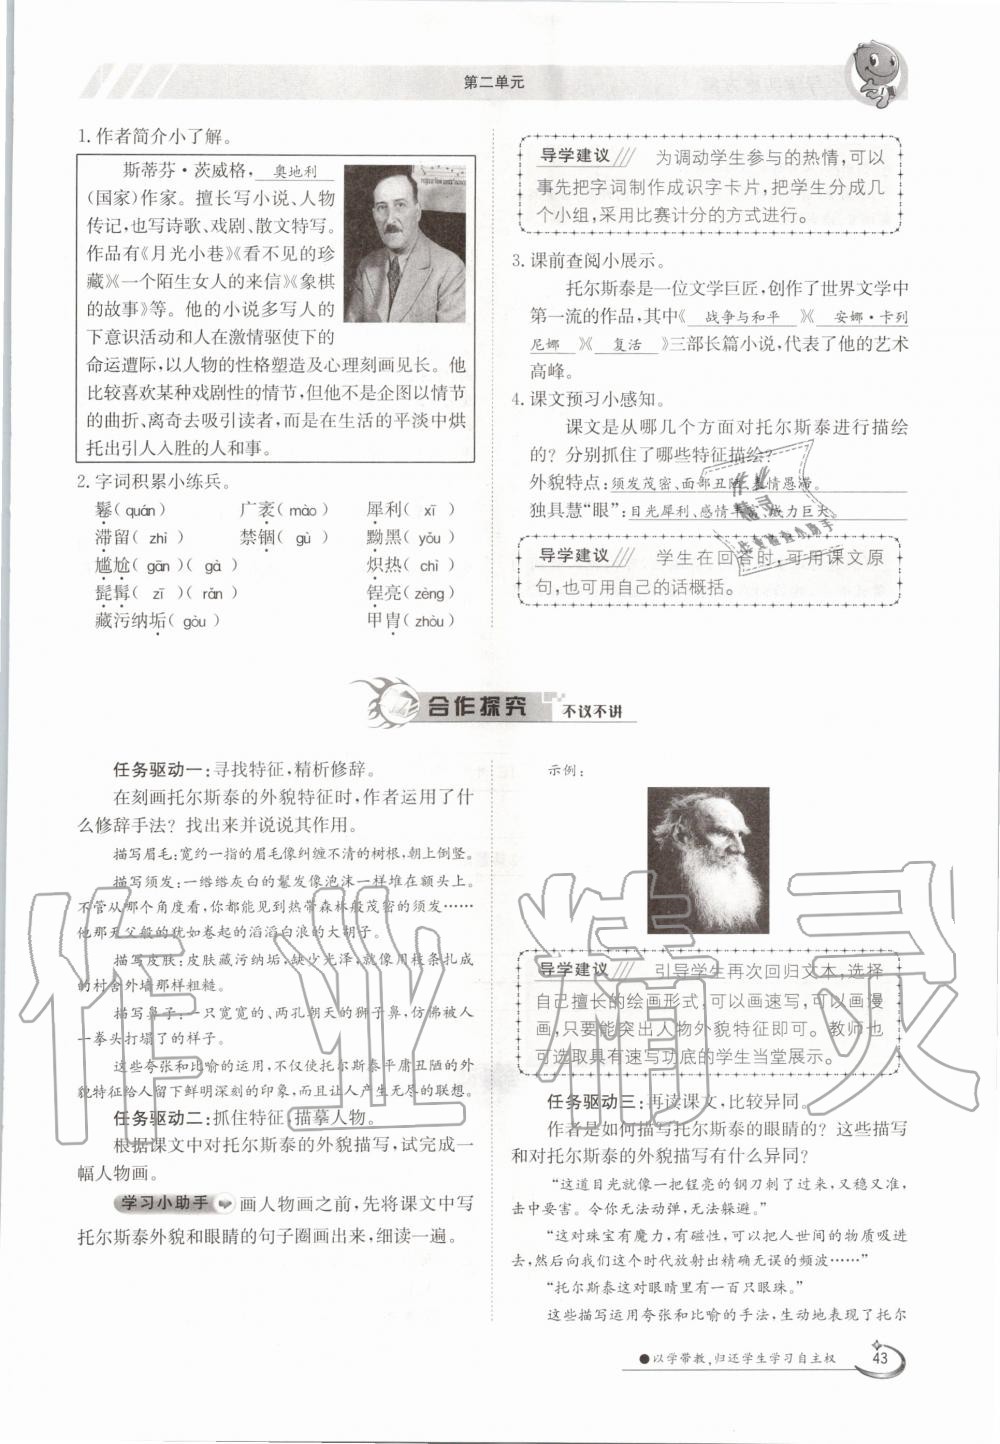 第二单元
1. 作者简介小了解。
斯蒂芬·茨威格, 奥地利
(国家)作家。擅长写小说、人物
传记,也写诗歌、戏剧、散文特写。
作品有《月光小巷》《看不见的珍
藏》《一个陌生女人的来信》《象棋
的故事》等。他的小说多写人的
下意识活动和人在激情驱使下的
命运遭际,以人物的性格塑造及心理刻画见长。他
比较喜欢某种戏剧性的情节,但他不是企图以情节
的曲折、离奇去吸引读者,而是在生活的平淡中烘
托出引人入胜的人和事。
2. 字词积累小练兵。
鬈(quán) 广袤(mào) 犀利(xī)
滞留(zhì) 禁锢(gù) 黝黑(yǒu)
尴尬(gān)(gà) 炽热(chì)
髭髯(zī)(rǎn) 锃亮(zèng)
藏污纳垢(gòu) 甲胄(zhòu)
导学建议 为调动学生参与的热情,可以
事先把字词制作成识字卡片,把学生分成几
个小组,采用比赛计分的方式进行。
3. 课前查阅小展示。
托尔斯泰是一位文学巨匠,创作了世界文学中
第一流的作品,其中《 战争与和平 》《 安娜·卡列
尼娜 》《 复活 》三部长篇小说,代表了他的艺术
高峰。
4. 课文预习小感知。
课文是从哪几个方面对托尔斯泰进行描绘
的?分别抓住了哪些特征描绘?
外貌特点:须发茂密、面部丑陋、表情愚滞。
独具慧“眼”:目光犀利、感情丰富、威力巨大。
导学建议 学生在回答时,可用课文原
句,也可用自己的话概括。
作业
精灵
作业检查小助手
合作探究 不议不讲
任务驱动一:寻找特征,精析修辞。
在刻画托尔斯泰的外貌特征时,作者运用了什
么修辞手法?找出来并说说其作用。
描写眉毛:宽约一指的眉毛像纠缠不清的树根,朝上倒竖。
描写须发:一绺绺灰白的鬈发像泡沫一样堆在额头上。
不管从哪个角度看,你都能见到热带森林般茂密的须发……
他那天父般的犹如卷起的滔滔白浪的大胡子。
描写皮肤:皮肤藏污纳垢,缺少光泽,就像用枝条扎成
的村舍外墙那样粗糙。
描写鼻子:一只宽宽的、两孔朝天的狮子鼻,仿佛被人
一拳头打塌了的样子。
这些夸张和比喻的运用,不仅使托尔斯泰平庸丑陋的外
貌特征给人留下鲜明深刻的印象,而且让人产生无尽的联想。
任务驱动二:抓住特征,描摹人物。
根据课文中对托尔斯泰的外貌描写,试完成一
幅人物画。
学习小助手 画人物画之前,先将课文中写
托尔斯泰外貌和眼睛的句子圈画出来,细读一遍。
示例:
导学建议 引导学生再次回归文本,选择
自己擅长的绘画形式,可以画速写,可以画漫
画,只要能突出人物外貌特征即可。教师也
可选取具有速写功底的学生当堂展示。
任务驱动三:再读课文,比较异同。
作者是如何描写托尔斯泰的眼睛的?这些描写
和对托尔斯泰的外貌描写有什么异同?
“这道目光就像一把锃亮的钢刀刺了过来,又稳又准,
击中要害。令你无法动弹,无法躲避。”
“这对珠宝有魔力,有磁性,可以把人世间的物质吸进
去,然后向我们这个时代放射出精确无误的频波……”
“托尔斯泰这对眼睛里有一百只眼珠。”
这些描写运用夸张和比喻的手法,生动地表现了托尔
作业精灵
●以学带教,归还学生学习自主权 43